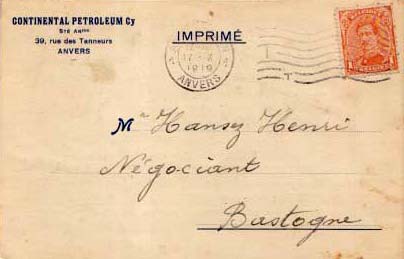 CONTINENTAL PETROLEUM Cy
Sté Anme
39, rue des Tanneurs
ANVERS
IMPRIMÉ
1919
ANVERS
Mr Hansez Henri
Négociant
Bastogne